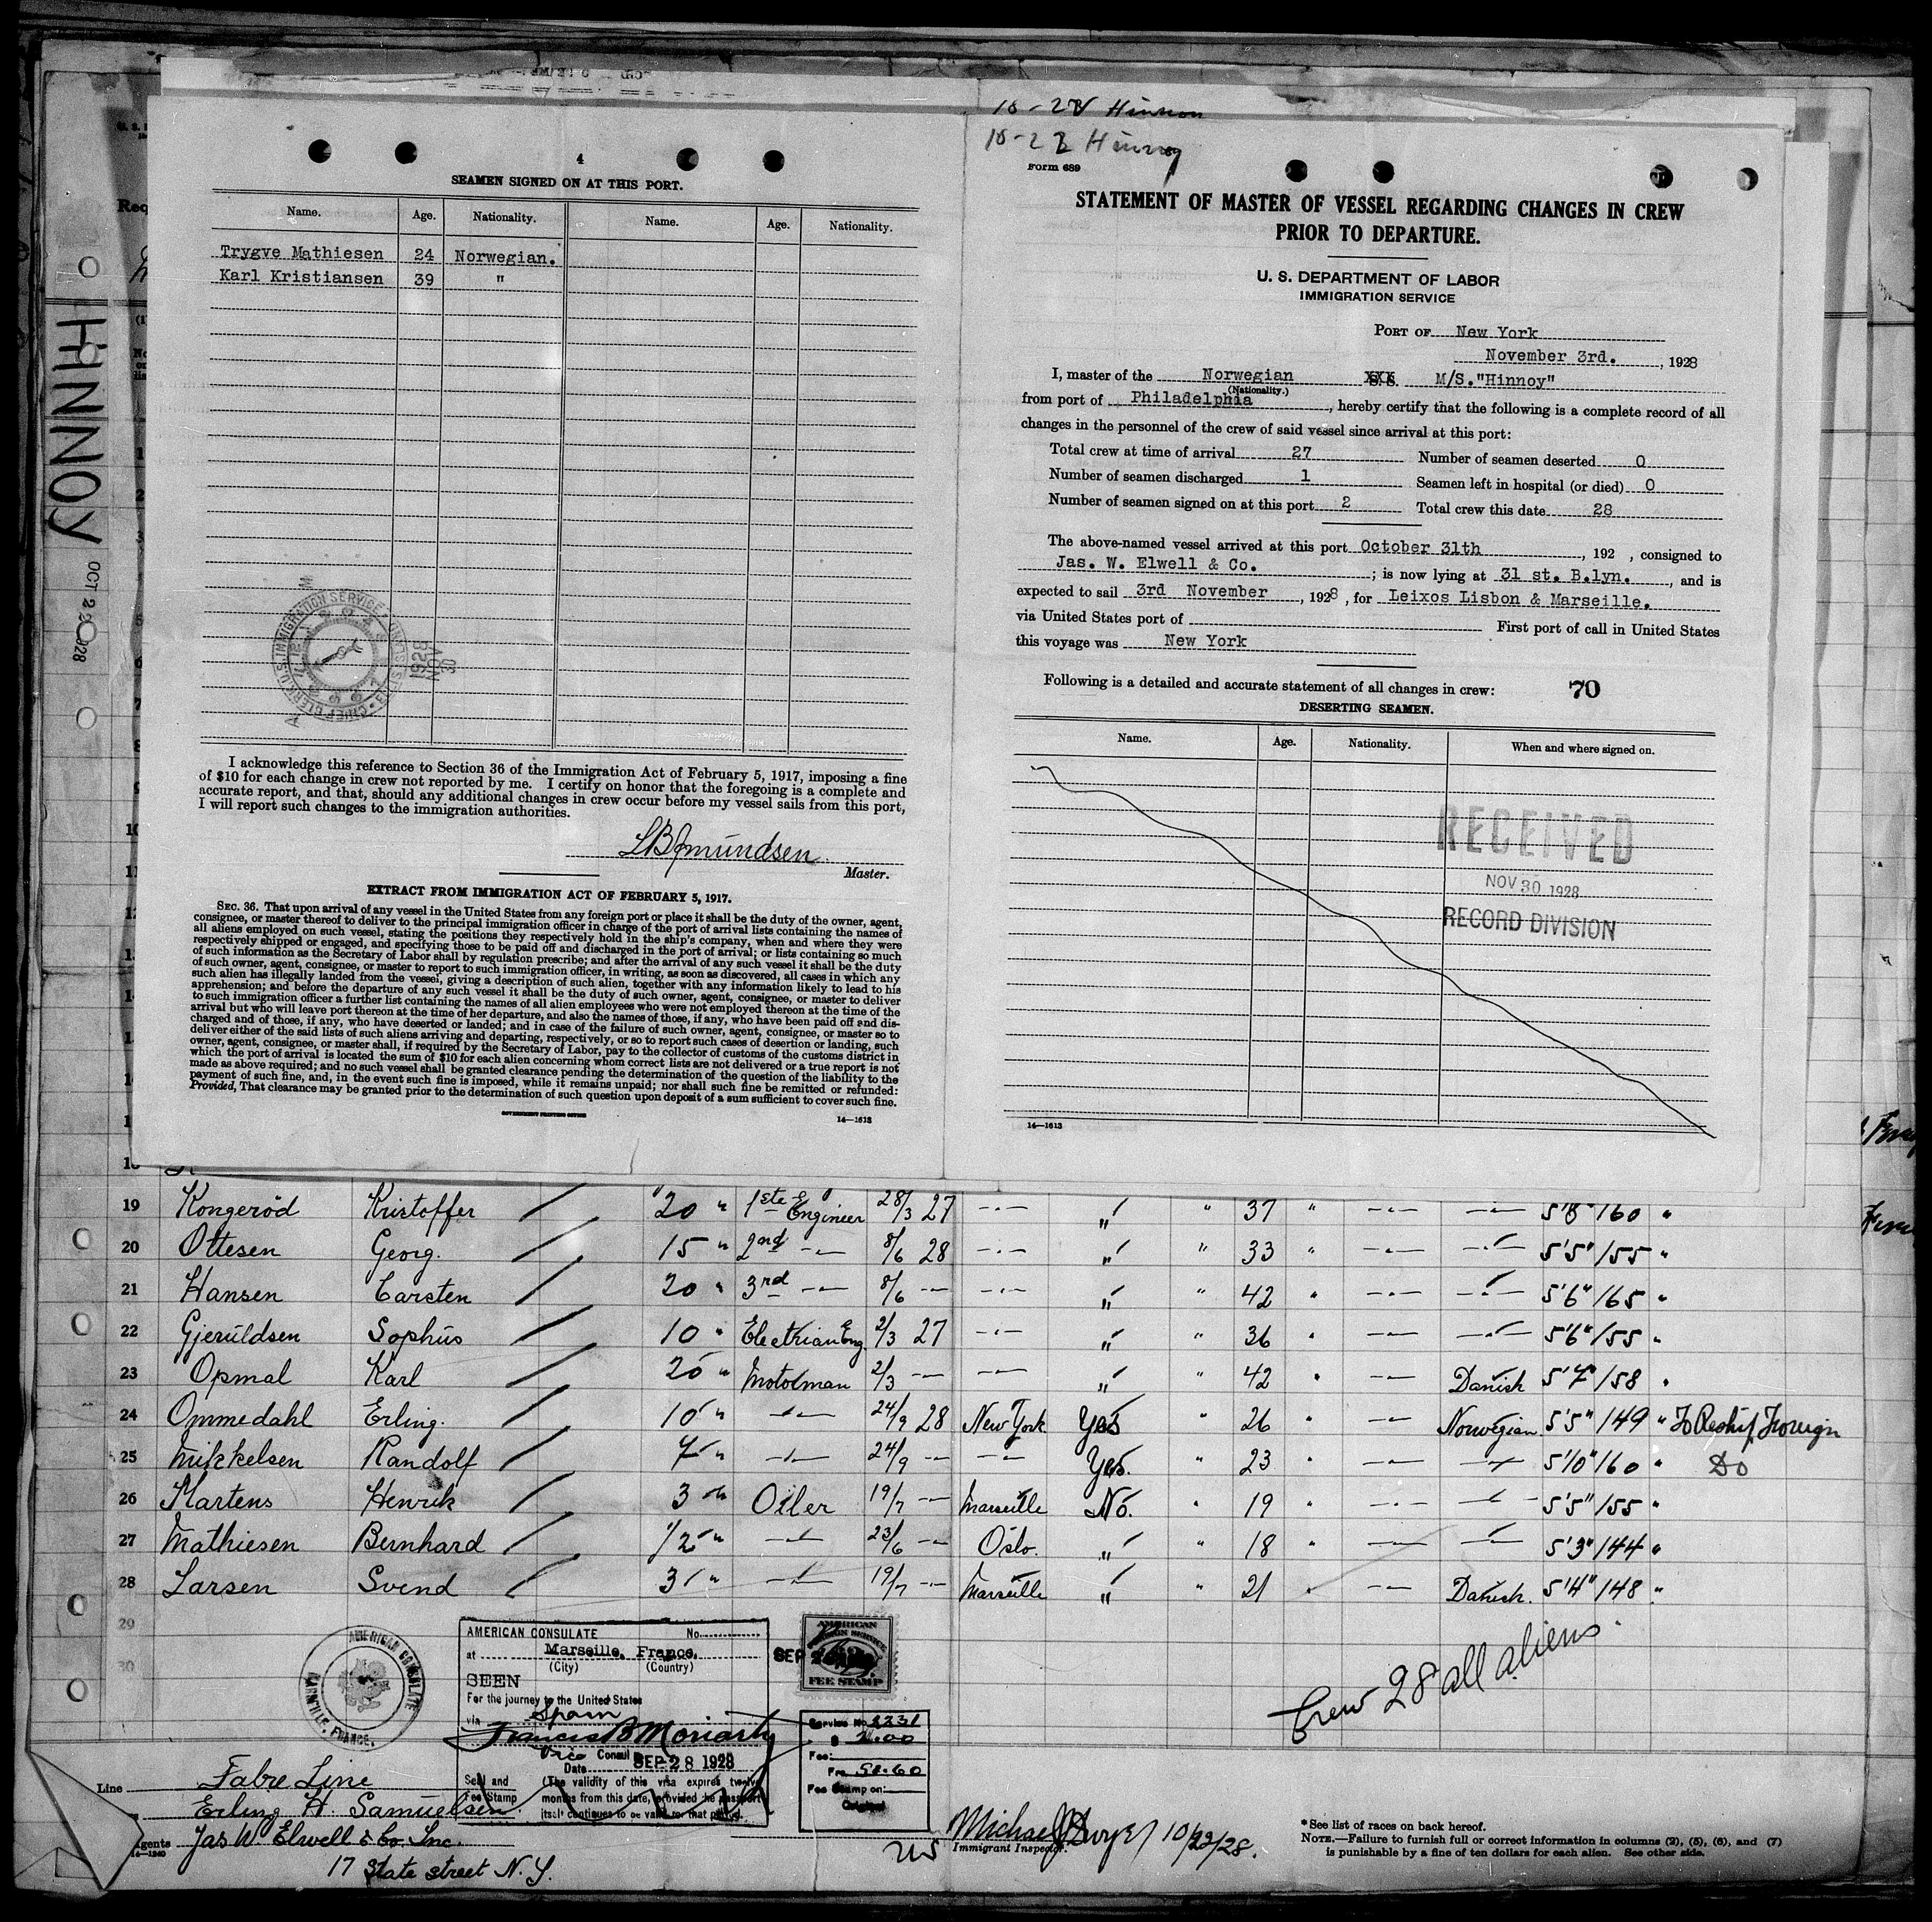 10-28 Hinnoy
10-22 Hinnoy
HINNOY
OCT 22 1928
4
SEAMEN SIGNED ON AT THIS PORT.
Name. Age. Nationality. Name. Age. Nationality.
Trygve Mathiesen 24 Norwegian.
Karl Kristiansen 39 "
CHIEF CLERK U.S. IMMIGRATION SERVICE
1928 NOV
I acknowledge this reference to Section 36 of the Immigration Act of February 5, 1917, imposing a fine
of $10 for each change in crew not reported by me. I certify on honor that the foregoing is a complete and
accurate report, and that, should any additional changes in crew occur before my vessel sails from this port,
I will report such changes to the immigration authorities.
Master.
EXTRACT FROM IMMIGRATION ACT OF FEBRUARY 5, 1917.
SEC. 36. That upon arrival of any vessel in the United States from any foreign port or place it shall be the duty of the owner, agent,
consignee, or master thereof to deliver to the principal immigration officer in charge of the port of arrival lists containing the names of
all aliens employed on such vessel, stating the positions they respectively hold in the ship's company, when and where they were
respectively shipped or engaged, and specifying those to be paid off and discharged in the port of arrival; or lists containing so much
of such information as the Secretary of Labor shall by regulation prescribe; and after the arrival of any such vessel it shall be the duty
of such owner, agent, consignee, or master to report to such immigration officer, in writing, as soon as discovered, all cases in which any
such alien has illegally landed from the vessel, giving a description of such alien, together with any information likely to lead to his
apprehension; and before the departure of any such vessel it shall be the duty of such owner, agent, consignee, or master to deliver
to such immigration officer a further list containing the names of all alien employees who were not employed thereon at the time of the
arrival but who will leave port thereon at the time of her departure, and also the names of those, if any, who have been paid off and dis-
charged and of those, if any, who have deserted or landed; and in case of the failure of such owner, agent, consignee, or master so to
deliver either of the said lists of such aliens arriving and departing, respectively, or so to report such cases of desertion or landing, such
owner, agent, consignee, or master shall, if required by the Secretary of Labor, pay to the collector of customs of the customs district in
which the port of arrival is located the sum of $10 for each alien concerning whom correct lists are not delivered or a true report is not
made as above required; and no such vessel shall be granted clearance pending the determination of the question of the liability to the
payment of such fine, and, in the event such fine is imposed, while it remains unpaid; nor shall such fine be remitted or refunded:
Provided, That clearance may be granted prior to the determination of such question upon deposit of a sum sufficient to cover such fine.
GOVERNMENT PRINTING OFFICE
14—1613
Form 689
STATEMENT OF MASTER OF VESSEL REGARDING CHANGES IN CREW
PRIOR TO DEPARTURE.
U. S. DEPARTMENT OF LABOR
IMMIGRATION SERVICE
PORT OF New York
November 3rd. , 1928
I, master of the Norwegian S. S. M/S."Hinnoy"
(Nationality.)
from port of Philadelphia , hereby certify that the following is a complete record of all
changes in the personnel of the crew of said vessel since arrival at this port:
Total crew at time of arrival 27 Number of seamen deserted 0
Number of seamen discharged 1 Seamen left in hospital (or died) 0
Number of seamen signed on at this port 2 Total crew this date 28
The above-named vessel arrived at this port October 31th , 192 , consigned to
Jas. W. Elwell & Co. ; is now lying at 31 st. B.lyn. , and is
expected to sail 3rd November , 1928 , for Leixos Lisbon & Marseille.
via United States port of First port of call in United States
this voyage was New York
Following is a detailed and accurate statement of all changes in crew: 70
DESERTING SEAMEN.
Name. Age. Nationality. When and where signed on.
RECEIVED
NOV 30 1928
RECORD DIVISION
14—1613
19 Kongeröd Kristoffer 20 " 1ste Engineer 28/3 27 -"- " " 37 " -"- -"- 5'8" 160 "
20 Ottesen Georg. 15 " 2nd -"- 8/6 28 -"- " " 33 " -"- -"- 5'5" 155 "
21 Hansen Carsten 20 " 3rd -"- 8/6 -"- -"- " " 42 " -"- -"- 5'6" 165 "
22 Gjerüldsen Sophüs 10 " Electrian Eng. 2/3 27 -"- " " 36 " -"- -"- 5'6" 155 "
23 Opmal Karl 20 " Motolman 2/3 -"- -"- " " 42 " -"- Danish 5'7" 158 "
24 Ommedahl Erling. 10 " -"- 24/9 28 New York Yes " 26 " -"- Norwegian 5'5" 149 " To Reship Foreign
25 Mikkelsen Randolf 7 " -"- 24/9 -"- -"- Yes. " 23 " -"- -"- 5'10" 160 " Do
26 Martens Henrik 3 " Oiler 19/7 -"- Marseille No. " 19 " -"- -"- 5'5" 155 "
27 Mathiesen Bernhard 1/2 " -"- 23/6 -"- Oslo. " " 18 " -"- -"- 5'3" 144 "
28 Larsen Svend 3 " -"- 19/7 -"- Marseille " " 21 " -"- Danish. 5'4" 148 "
29
30
Crew 28 all aliens
AMERICAN CONSULATE
AMERICAN CONSULATE No.
at Marseille, France.
(City) (Country)
SEEN
For the journey to the United States
via Spain
Francis B Moriarty
Vice Consul
Date SEP 28 1928
Seal and Fee Stamp
(The validity of this visa expires twelve
months from this date, provided the passport
itself continues to be valid for that period.
AMERICAN
FEE STAMP
Service No. 2231
$ 2.00
Fee:
Frs 51.60
Fee Stamp on:
Original
Line Fabre Line
Erling H. Samuelsen
Agents Jas W Elwell & Co. Inc.
17 State street N. Y.
14—1240
10/22/28.
Immigrant Inspector.
*See list of races on back hereof.
NOTE.—Failure to furnish full or correct information in columns (2), (5), (6), and (7)
is punishable by a fine of ten dollars for each alien. See other side.